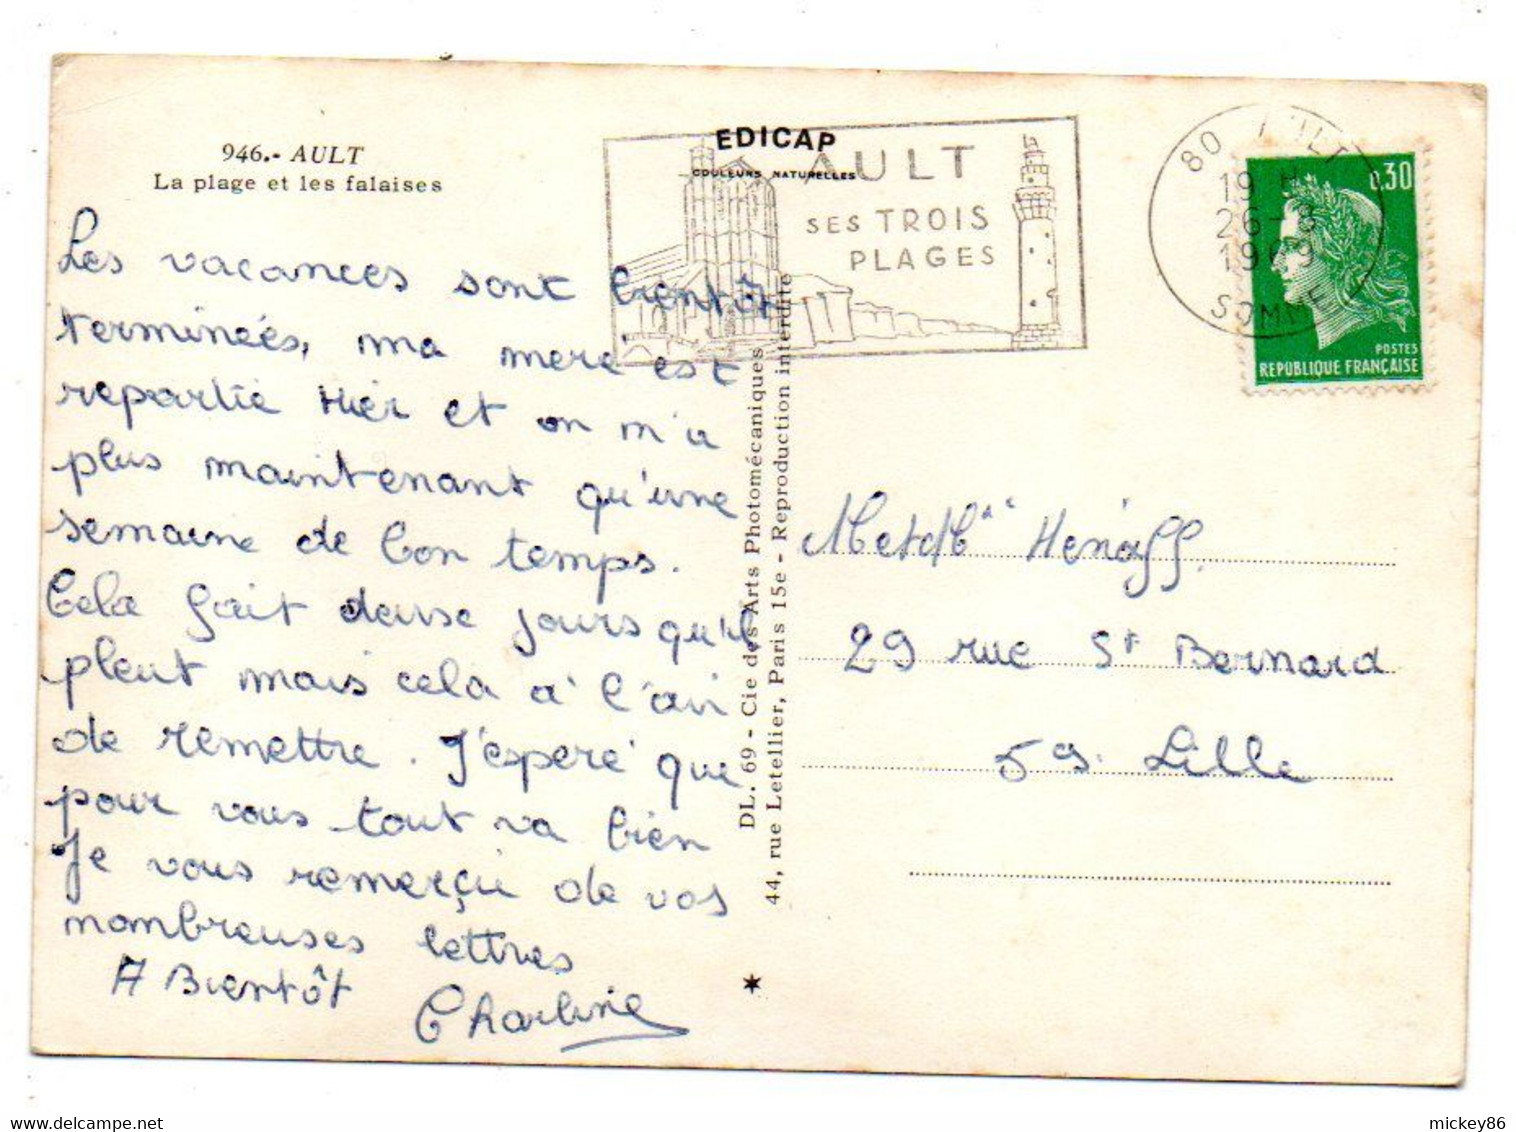 946.- AULT
La plage et les falaises
Les vacances sont bientôt
terminées, ma mère est
repartie Hier et on m'a
plus maintenant qu'une
semaine de bon temps.
Cela fait deuse jours qu'il
pleut mais cela a l'air
de remettre. J'espere que
pour vous tout va bien
Je vous remerçie de vos
nombreuses lettres
A Bientôt
Charline
EDICAP
COULEURS NATURELLES
AULT
SES TROIS
PLAGES
80 AULT
19 H
26-8
1969
SOMME
0,30
POSTES
REPUBLIQUE FRANÇAISE
DL. 69 - Cie des Arts Photomécaniques
44, rue Letellier, Paris 15e - Reproduction interdite
M et Hénaff.
29 rue St Bernard
59. Lille
mickey86